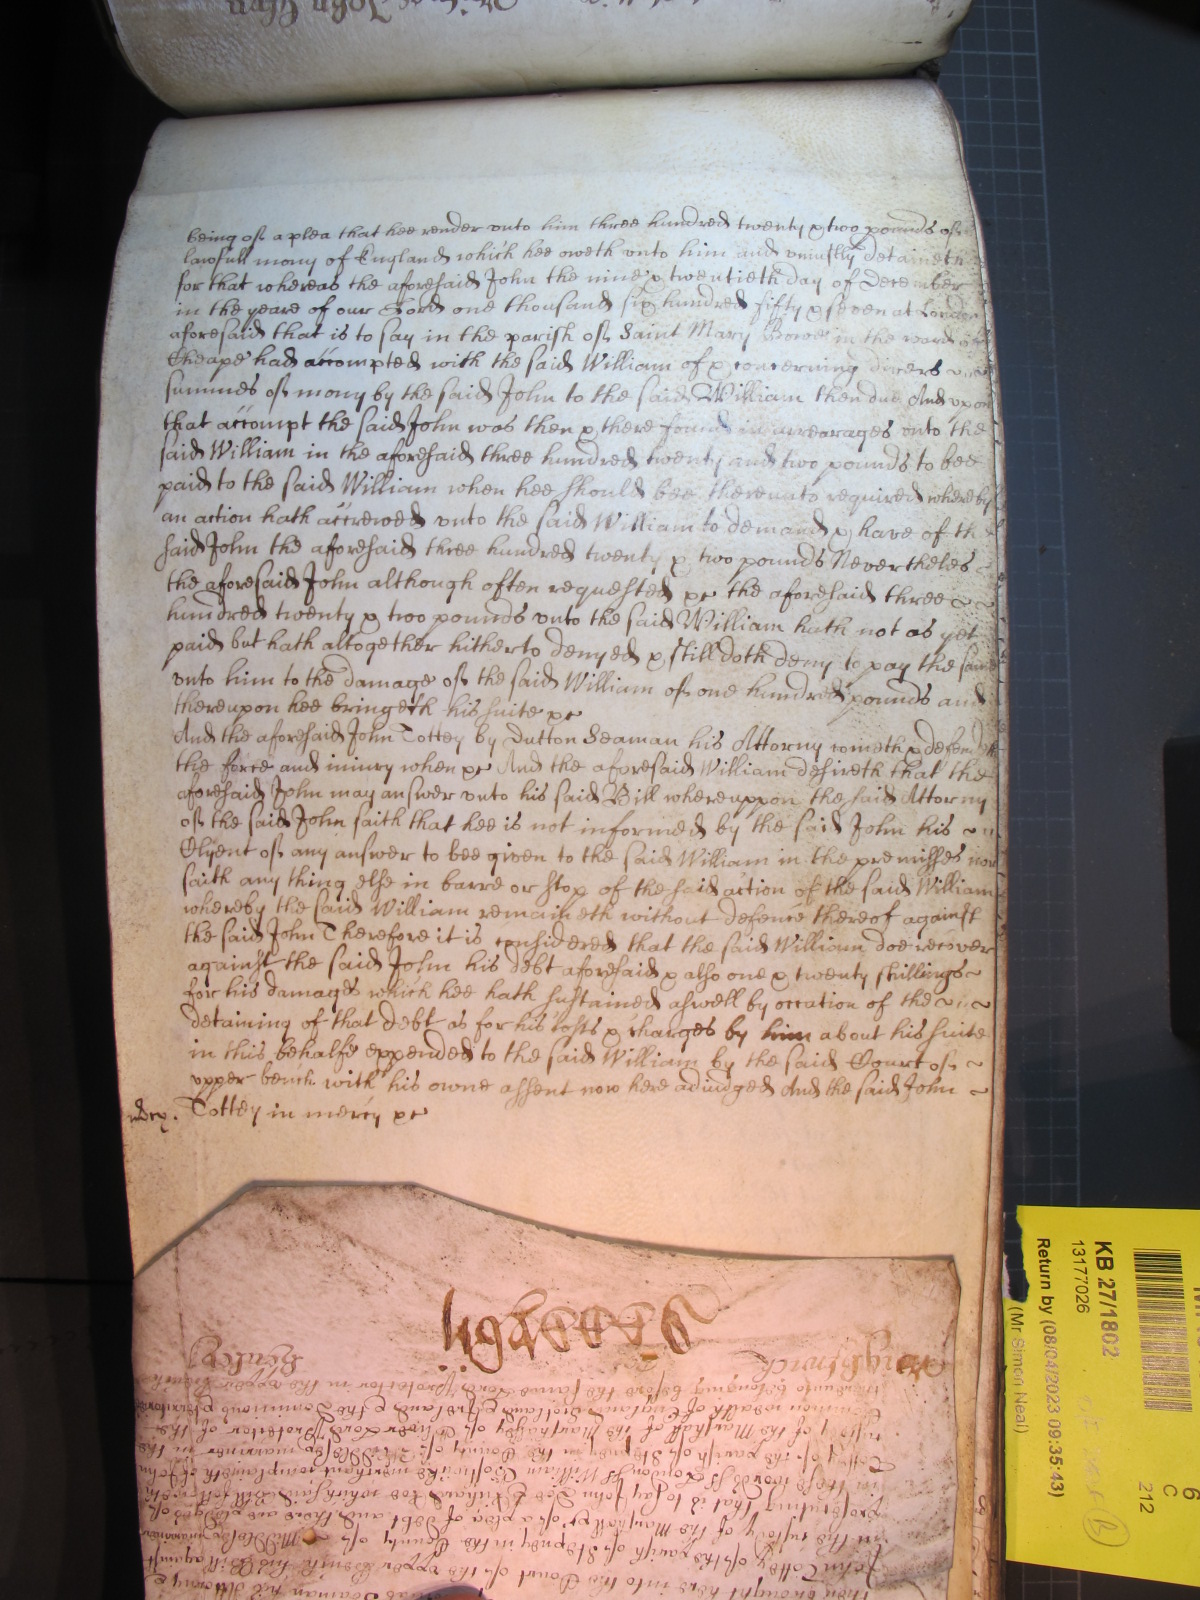 being of a plea that hee render unto him three hundred twenty & two pounds of
lawfull mony of England which hee oweth unto him and uniustly detaineth
for that whereas the aforesaid John the nine & twentieth day of December
in the yeare of our Lord one thousand six hundred fifty & seven at London
aforesaid that is to say in the parish of Saint Mary Bowe in the ward of
Cheape had accompted with the said William of & concerning divers
summes of mony by the said John to the said William then due And upon
that accompt the said John was then & there found in arrearages unto the
said William in the aforesaid three hundred twenty and two pounds to bee
paid to the said William when hee should bee thereunto required whereby
an action hath accrewed unto the said William to demand & have of the
said John the aforesaid three hundred twenty & two pounds Neverthelesse
the aforesaid John although often requested &c the aforesaid three
hundred twenty & two pounds unto the said William hath not as yet
paid but hath altogether hitherto denyed & still doth deny to pay the same
unto him to the damage of the said William of one hundred pounds and
thereupon hee bringeth his suite &c
And the aforesaid John Tottey by Dutton Seaman his Attorny cometh & defendeth
the force and iniury when &c And the aforesaid William desireth that the
aforesaid John may answer unto his said Bill whereuppon the said Attorny
of the said John saith that hee is not informed by the said John his
Clyent of any answer to bee given to the said William in the premisses nor
saith any thing else in barre or stop of the said action of the said William
whereby the said William remaineth without defence thereof against
the said John Therefore it is considered that the said William doe recover
against the said John his debt aforesaid & also one & twenty shillings
for his damages which hee hath sustained aswell by occation of the
detaining of that debt as for his costs & charges by him about his suite
in this behalfe expended to the said William by the said Court of
upper bench with his owne assent now here adiudged And the said John
Tottey in mercy &c
Wightwick
in the custody of the Marshall &c of a plea of debt and there are pledges of
prosecuting that is to say John Doe & Richard Roe which said Bill followeth
in these words ss London ss William merchant complaineth of John
Tottey of the parish of Stepney in the County of Midd mariner in the
custody of the Marshall of the Marshalsey of his Lord Protector of the
Common wealth of England Scotland & Ireland & the Dominions & territories
thereunto belonging before the same Lord Protector in the upper bench
KB 27/1802
13177026
Return by (08/04/2023 09:35:43)
(Mr Simon Neal)
6
C
212
B